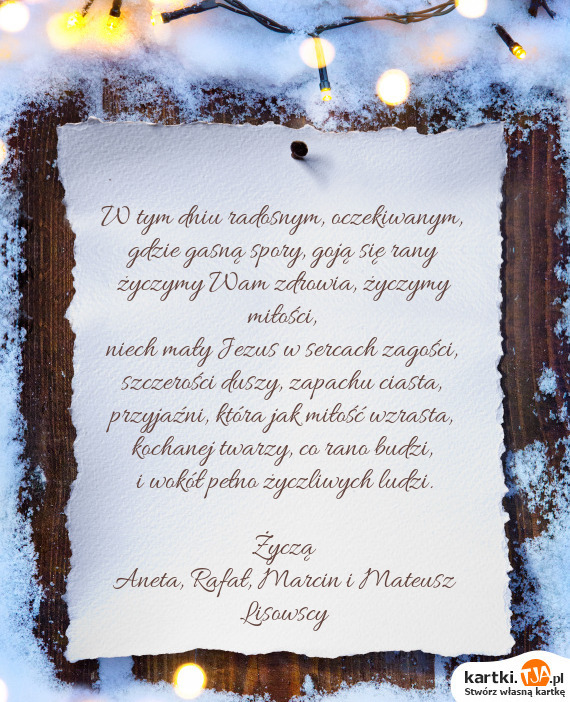 W tym dniu radosnym, oczekiwanym,
gdzie gasną spory, goją się rany
życzymy Wam zdrowia, życzymy
miłości,
niech mały Jezus w sercach zagości,
szczerości duszy, zapachu ciasta,
przyjaźni, która jak miłość wzrasta,
kochanej twarzy, co rano budzi,
i wokół pełno życzliwych ludzi.
Życzą
Aneta, Rafał, Marcin i Mateusz
Lisowscy
kartki.TJA.pl
Stwórz własną kartkę